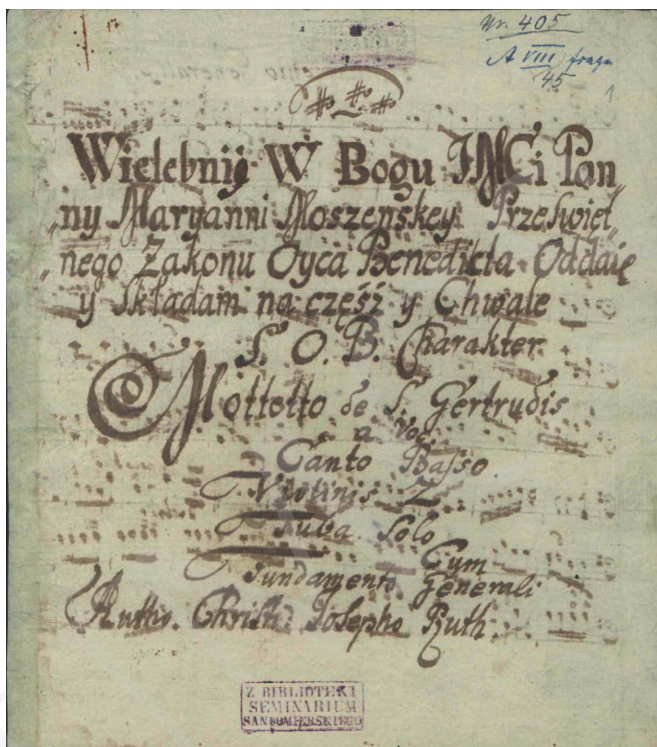 Nr. 405
A VIII fragm
45
1
Wielebnij W Bogu JMCi Pon„
„ny Maryanni Moszenskey Przeswięt„
„nego Zakonu Oyca Benedicta Oddaię
y składam na częśz y Chwałe
S. O. B. Charakter
Mottetto de S. Gertrudis
a Voc:
Canto Basso
Violinis 2
Tuba Solo
Cum
Fundamento Generali
Auth. Christ: Josepho Ruth.
Z BIBLIOTEKI
SEMINARIUM
SANDOMIERSKIEGO